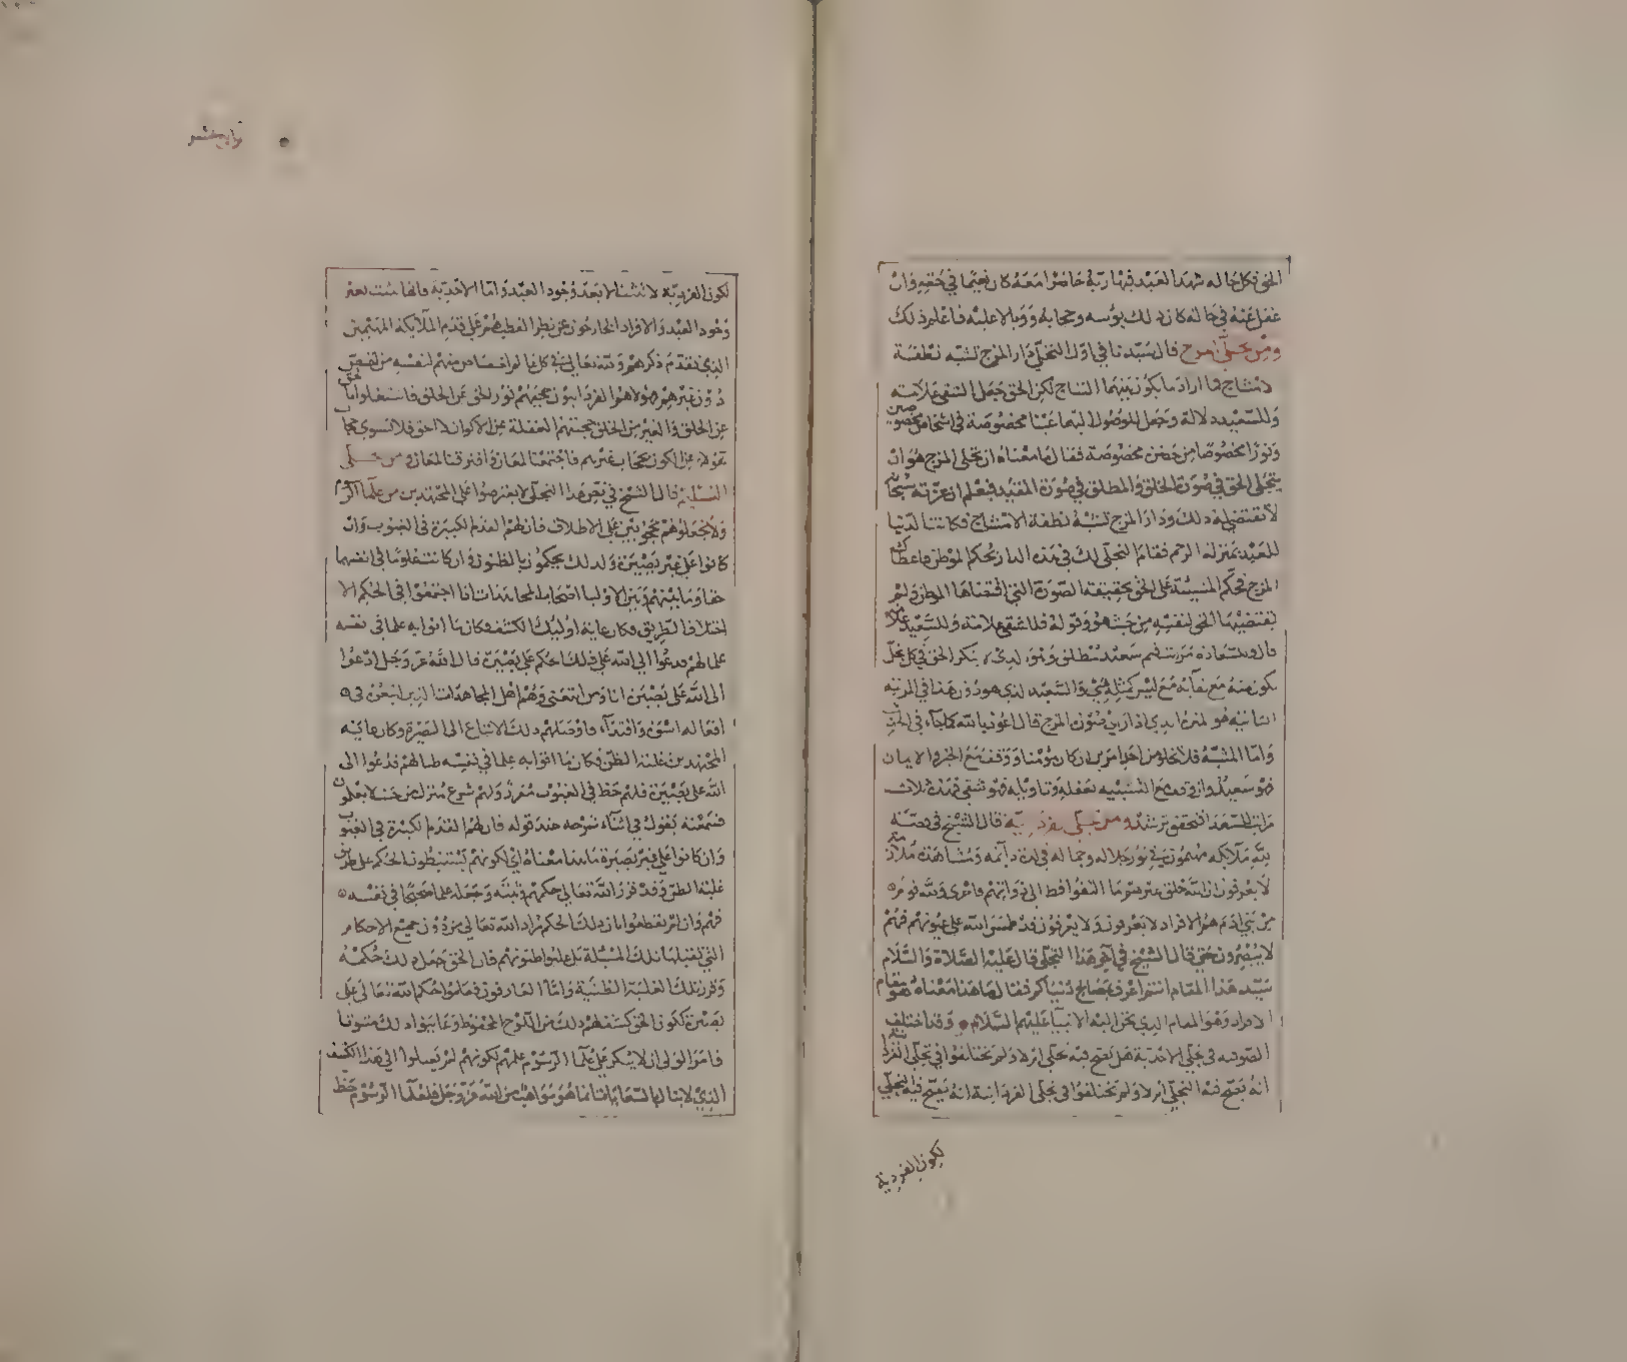 الحق فكل حالة شهد العبد فيها ربه حاضرا معه كان نعيما في حقه وان
غفل عنه في حالة كان ذلك بؤسه وحجابه ووبالا عليه فاعلم ذلك
ومن تجلي المزج قال سيدنا في اول التجلي دار المزج تشبه نطفة
لامشاج فما اراد ما يكون بينهما النتاج لكن الحق جعل للشقي علامة
وللسعيد دلالة وجعل للوصول اليهما عينا مخصوصة في اشخاص مخصوصين
ونورا مخصوصا من حضن مخصوصة فقال ما معناه ان تجلي المزج هو ان
يتجلى الحق في صورة الخلق والمطلق في صورة المقيد فيعلم ان عزته سبحانه
لا تقتضي ذلك ودار المزج تشبه نطفة الامشاج فكانت الدنيا
للعبد بمنزلة الرحم فقام التجلي لك في هذه الدار بحكم الموطن فاعطاك
المزج فحكم المشبه على الحق بحقيقة الصورة التي اقتضاها الموطن ولم
يقتضيها الحق لنفسه من حيث هو وقوله فللشقي علامة وللسعيد علامة
قال وللسعادة مراتب فثم سعيد مطلق وهو الذي لا ينكر الحق في كل تجل
يكون منه مع بقائه مع ليس كمثله شيء والسعيد الذي هو دون هذا في المرتبة
الثانية هو المنزه الذي اذا راى صورة المزج قال اعوذ بالله كما جاء في الحديث
واما المشبه فلا يخلو من احد امرين ان كان مؤمنا ووقف مع الخبر والايمان
فهو سعيد وان وقف مع التشبيه بعقله وتاويله فهو شقي فهذه ثلاث
مراتب للسعداء فتحقق ترشد ومن تجلي الفردانية قال الشيخ في نصه
لله ملائكة مهيمون في نور جلاله وجماله في لذة دائمة ومشاهدة ملازمة
لا يعرفون ان الله خلق غيرهم ما التفتوا قط الى ذواتهم فاحرى ولله قوم
من بني ادم هم الافراد لا يعرفون ولا يعرفون قد طمس الله على عيونهم فهم
لا يبصرون حتى قال الشيخ في آخر هذا التجلي قال عليه الصلاة والسلام
سيد هذا المقام انتم اعرف بمصالح دنياكم فقال ما هذا معناه هو مقام
الافراد وهو المقام الذي بحر اليه الانبيا عليهم السلام وقد اختلف
الصوفية في تجلي الاحدية هل يصح فيه تجلي ام لا ولم يختلفوا في تجلي الفردانية
انه يصح فيه التجلي ام لا ولم يختلفوا في تجلي الفردانية انه يصح فيه التجلي
لكون الفردية
لكون الفردية لا تثبت الا بعد وجود العبد واما الاحدية فانها تثبت بغير
وجود العبد والافراد الخارجون عن نظر القطب هم على قدم الملائكة المهيمين
الذي تقدم ذكرهم ولله تعالى في كل عالم اختصاص منهم لنفسه من لنفس
دون غيرهم فهؤلاء هم الفردانيون حجبهم نور الحق عن الخلق فاشتغلوا بالحق
عن الخلق والغير من الخلق حجبتهم الغفلة من الاكوان
من الكون حجاب غيرهم فاجتمعنا المعاز وافترقنا المعاز ومن تجلي
التسليم قال الشيخ في نص هذا التجلي لا يعترضوا على المجتهدين من علما الرسوم
ولا تجعلوهم محجوبين على الاطلاق فان لهم القدم الكبيرة في الغيوب وان
كانوا على غير بصيرة ولذلك يحكمون بالظنون وان كانت علوما في انفسها
حقا وما بينهم وبين الاوليا اصحاب المجاهدات اذا اجتمعوا في الحكم الا
اختلاف الطريق فكان غاية اوليك الكشف وكان ما اتوا به علما في نفسه
علما لهم فدعوا الى الله على ذلك حكم على بصيرة قال الله عز وجل ادعوا
الى الله على بصيرة انا ومن اتبعني وهم اهل المجاهدات الذين اتبعوه في
افعاله اسوة واقتداء فاوصلهم ذلك الاتباع الى البصيرة وكان غاية
المجتهدين غلبة الظن فكان ما اتوا به علما في نفسه ظنا لهم فدعوا الى
الله على بصيرة فلهم حظ في الغيوب مقرر ولهم شرع منزل من حيث لا يعلمون
فسمعته يقول في اثناء شرحه عند قوله فان لهم القدم الكبيرة في الغيوب
وان كانوا على غير بصيرة ما هذا معناه اي لكونهم يستنبطون الحكم على طريق
غلبة الظن وقد قرر الله تعالى حكمهم وثبته وجعله علما صحيحا في نفسه
فهم وان لم يقطعوا بان ذلك الحكم مراد الله تعالى من دون جميع الاحكام
التي تقبلها تلك المسئلة بل غلبوا ظنونهم فان الحق جعل ذلك حكمه
وقرر تلك الغلبة الظنية واما العارفون فعلموا حكم الله تعالى على
بصيرة لكون الحق كشف لهم ذلك من اللوح المحفوظ وعاينوا ذلك مثبوتا
فامر الولي ان لا ينكر على علما الرسوم علمهم لكونهم لم يصلوا الى هذا الكشف
الذي لا ينال بالسعايات انما هو مواهب من الله عز وجل فلعلما الرسوم حظ